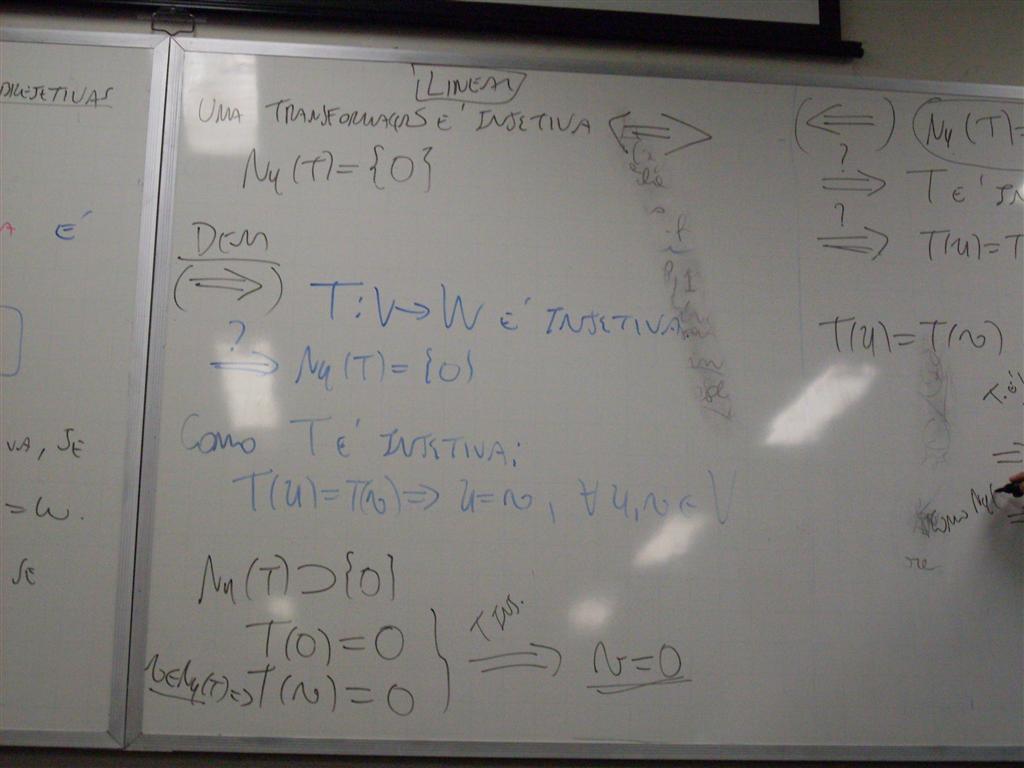 É
VA, SE
= W.
SE
LINEAR
UMA TRANSFORMAÇÃO É INJETIVA ⟺
Nu(T) = {0}
DEM
(⟹)
T: V → W É INJETIVA.
?
⟹ Nu(T) = {0}
COMO T É INJETIVA:
T(u) = T(v) ⟹ u = v, ∀ u, v ∈ V
Nu(T) ⊃ {0}
T(0) = 0
v ∈ Nu(T) ⟹ T(v) = 0
} T INJ. ⟹ v = 0
(⟸) Nu(T) =
?
⟹ T É IN
?
⟹ T(u) = T
T(u) = T(v)
⟹
COMO Nu(